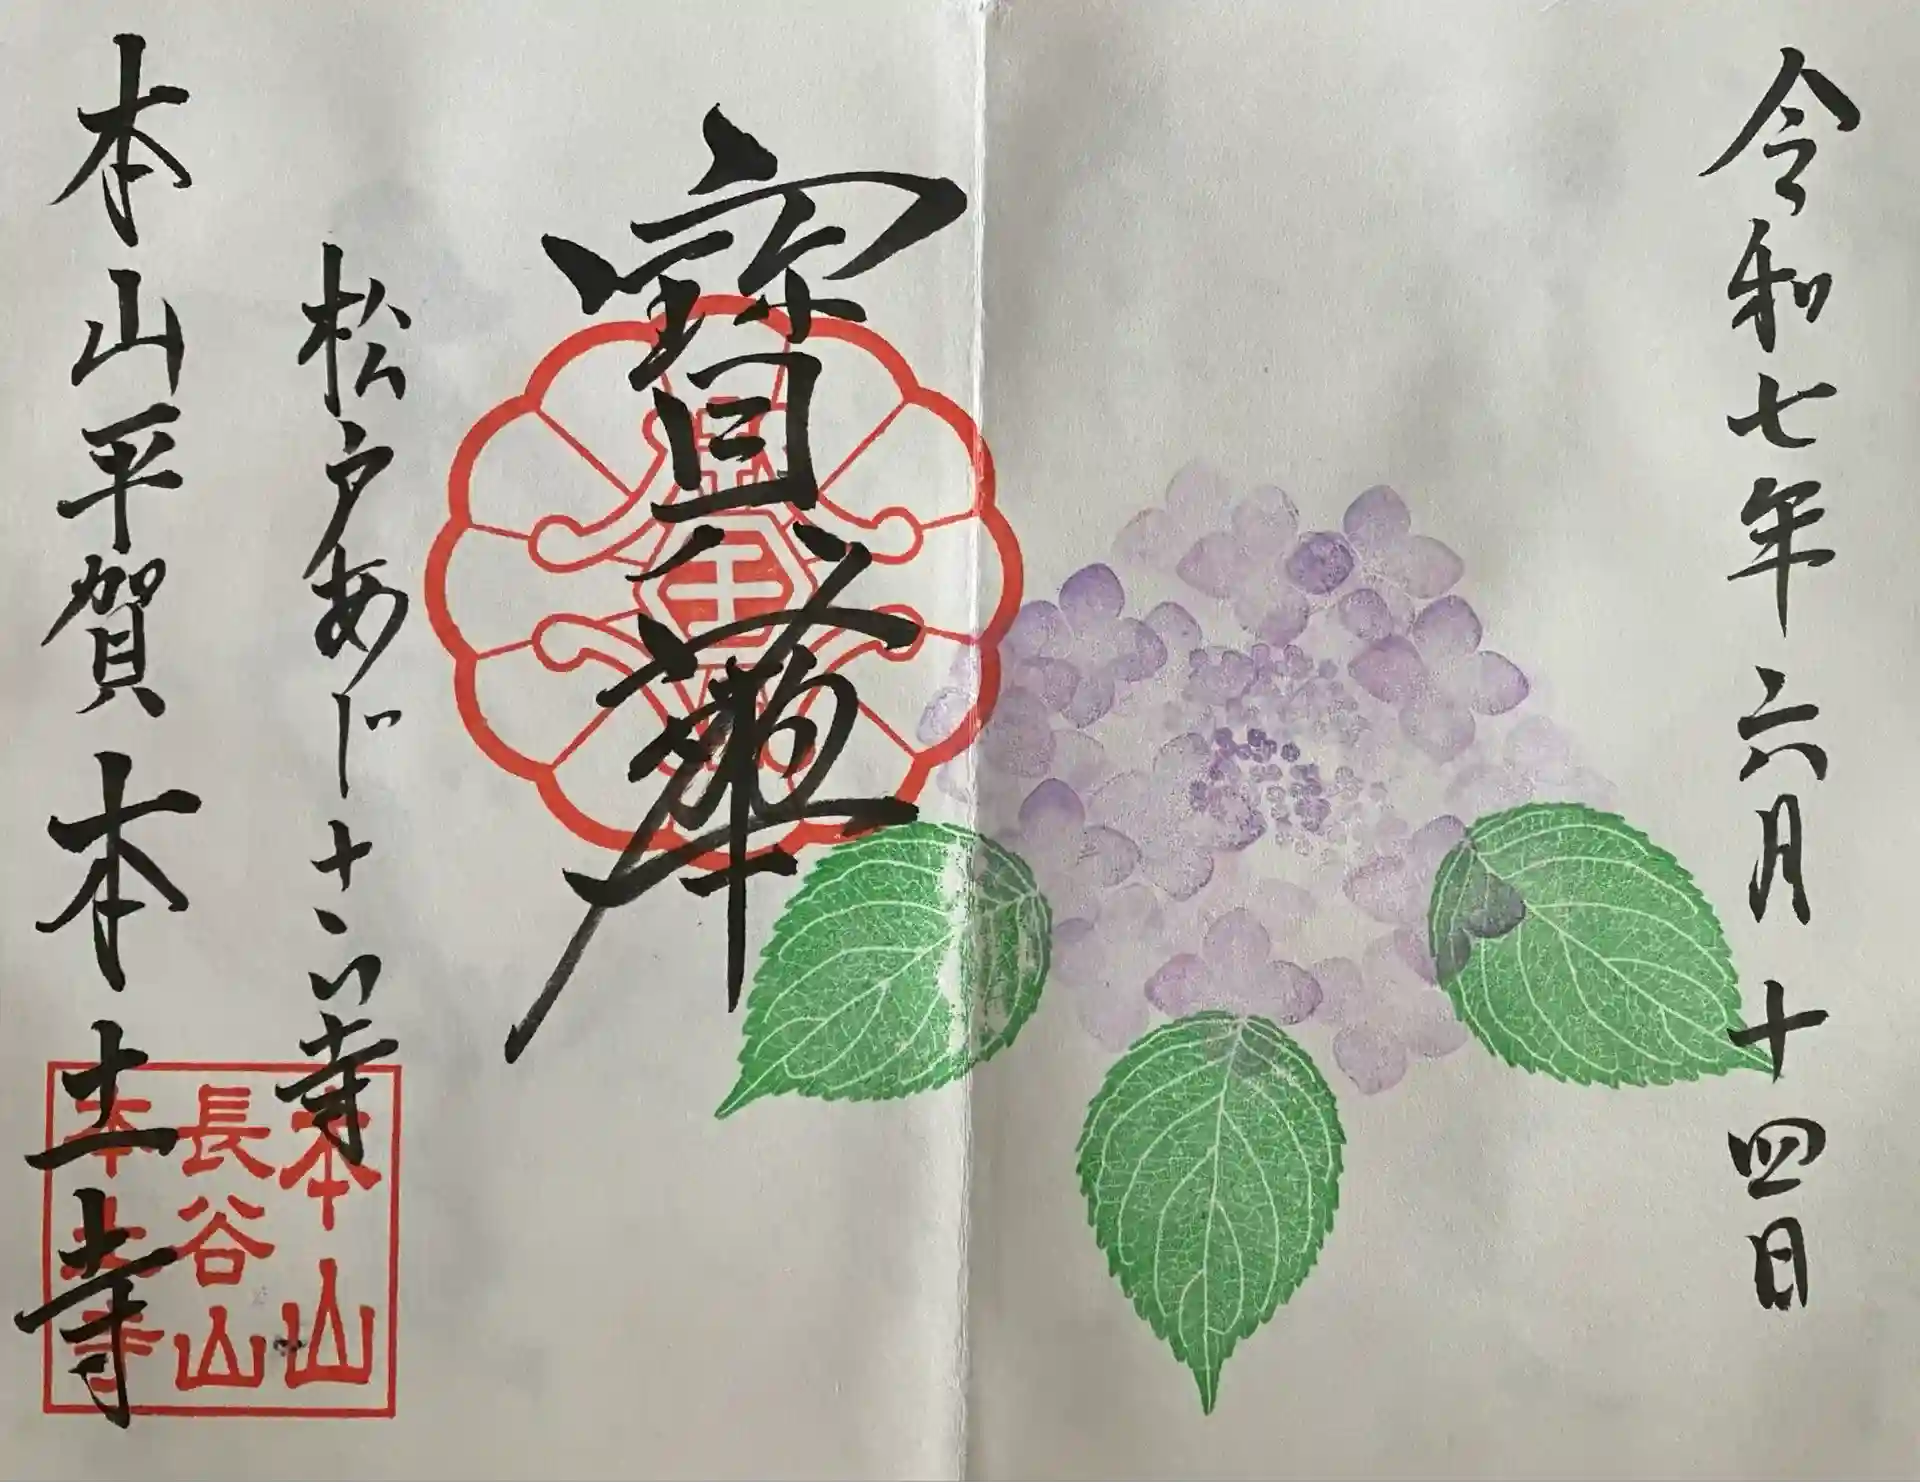 令和七年六月十四日
寳華
松戸あじさい寺
本山平賀本土寺
本山
長谷山
本土寺